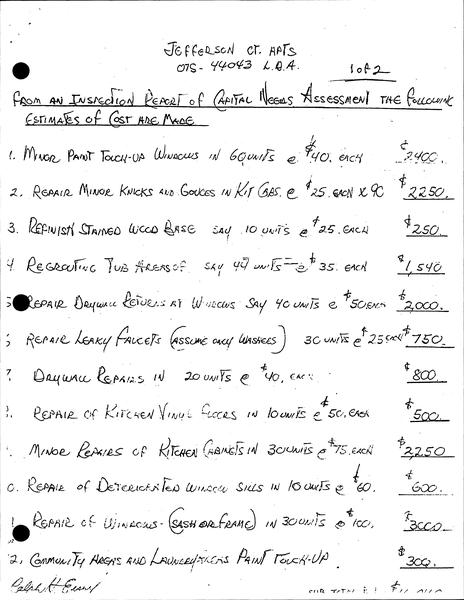 JEFFERSON CT. APTS
075-44043 L.D.A.
1 of 2
FROM AN INSPECTION REPORT OF CAPITAL NEEDS ASSESSMENT THE FOLLOWING
ESTIMATES OF COST ARE MADE
1. MINOR PAINT TOUCH-UP WINDOWS IN 60 UNITS @ $40. EACH $2400.
2. REPAIR MINOR KNICKS AND GOUGES IN KIT CABS. @ $25. EACH X 90 $2250.
3. REFINISH STAINED WOOD BASE SAY 10 UNITS @ $25. EACH $250.
4. REGROUTING TUB AREAS OF SAY 44 UNITS @ $35. EACH $1,540
5 REPAIR DRYWALL RETURNS AT WINDOWS SAY 40 UNITS @ $50. EACH $2,000.
REPAIR LEAKY FAUCETS (ASSUME ONLY WASHERS) 30 UNITS @ $25 EACH $750.
7. DRYWALL REPAIRS IN 20 UNITS @ $40. EACH $800
REPAIR OF KITCHEN VINYL FLOORS IN 10 UNITS @ $50. EACH $500.
MINOR REPAIRS OF KITCHEN CABINETS IN 30 UNITS @ $75. EACH $2,250
0. REPAIR OF DETERIORATED WINDOW SILLS IN 10 UNITS @ $60. $600.
REPAIR OF WINDOWS - (SASH OR FRAME) IN 30 UNITS @ $100. $3000.
2. COMMUNITY AREAS AND LAUNDRY AREAS PAINT TOUCH-UP. $300.
SUB TOTAL